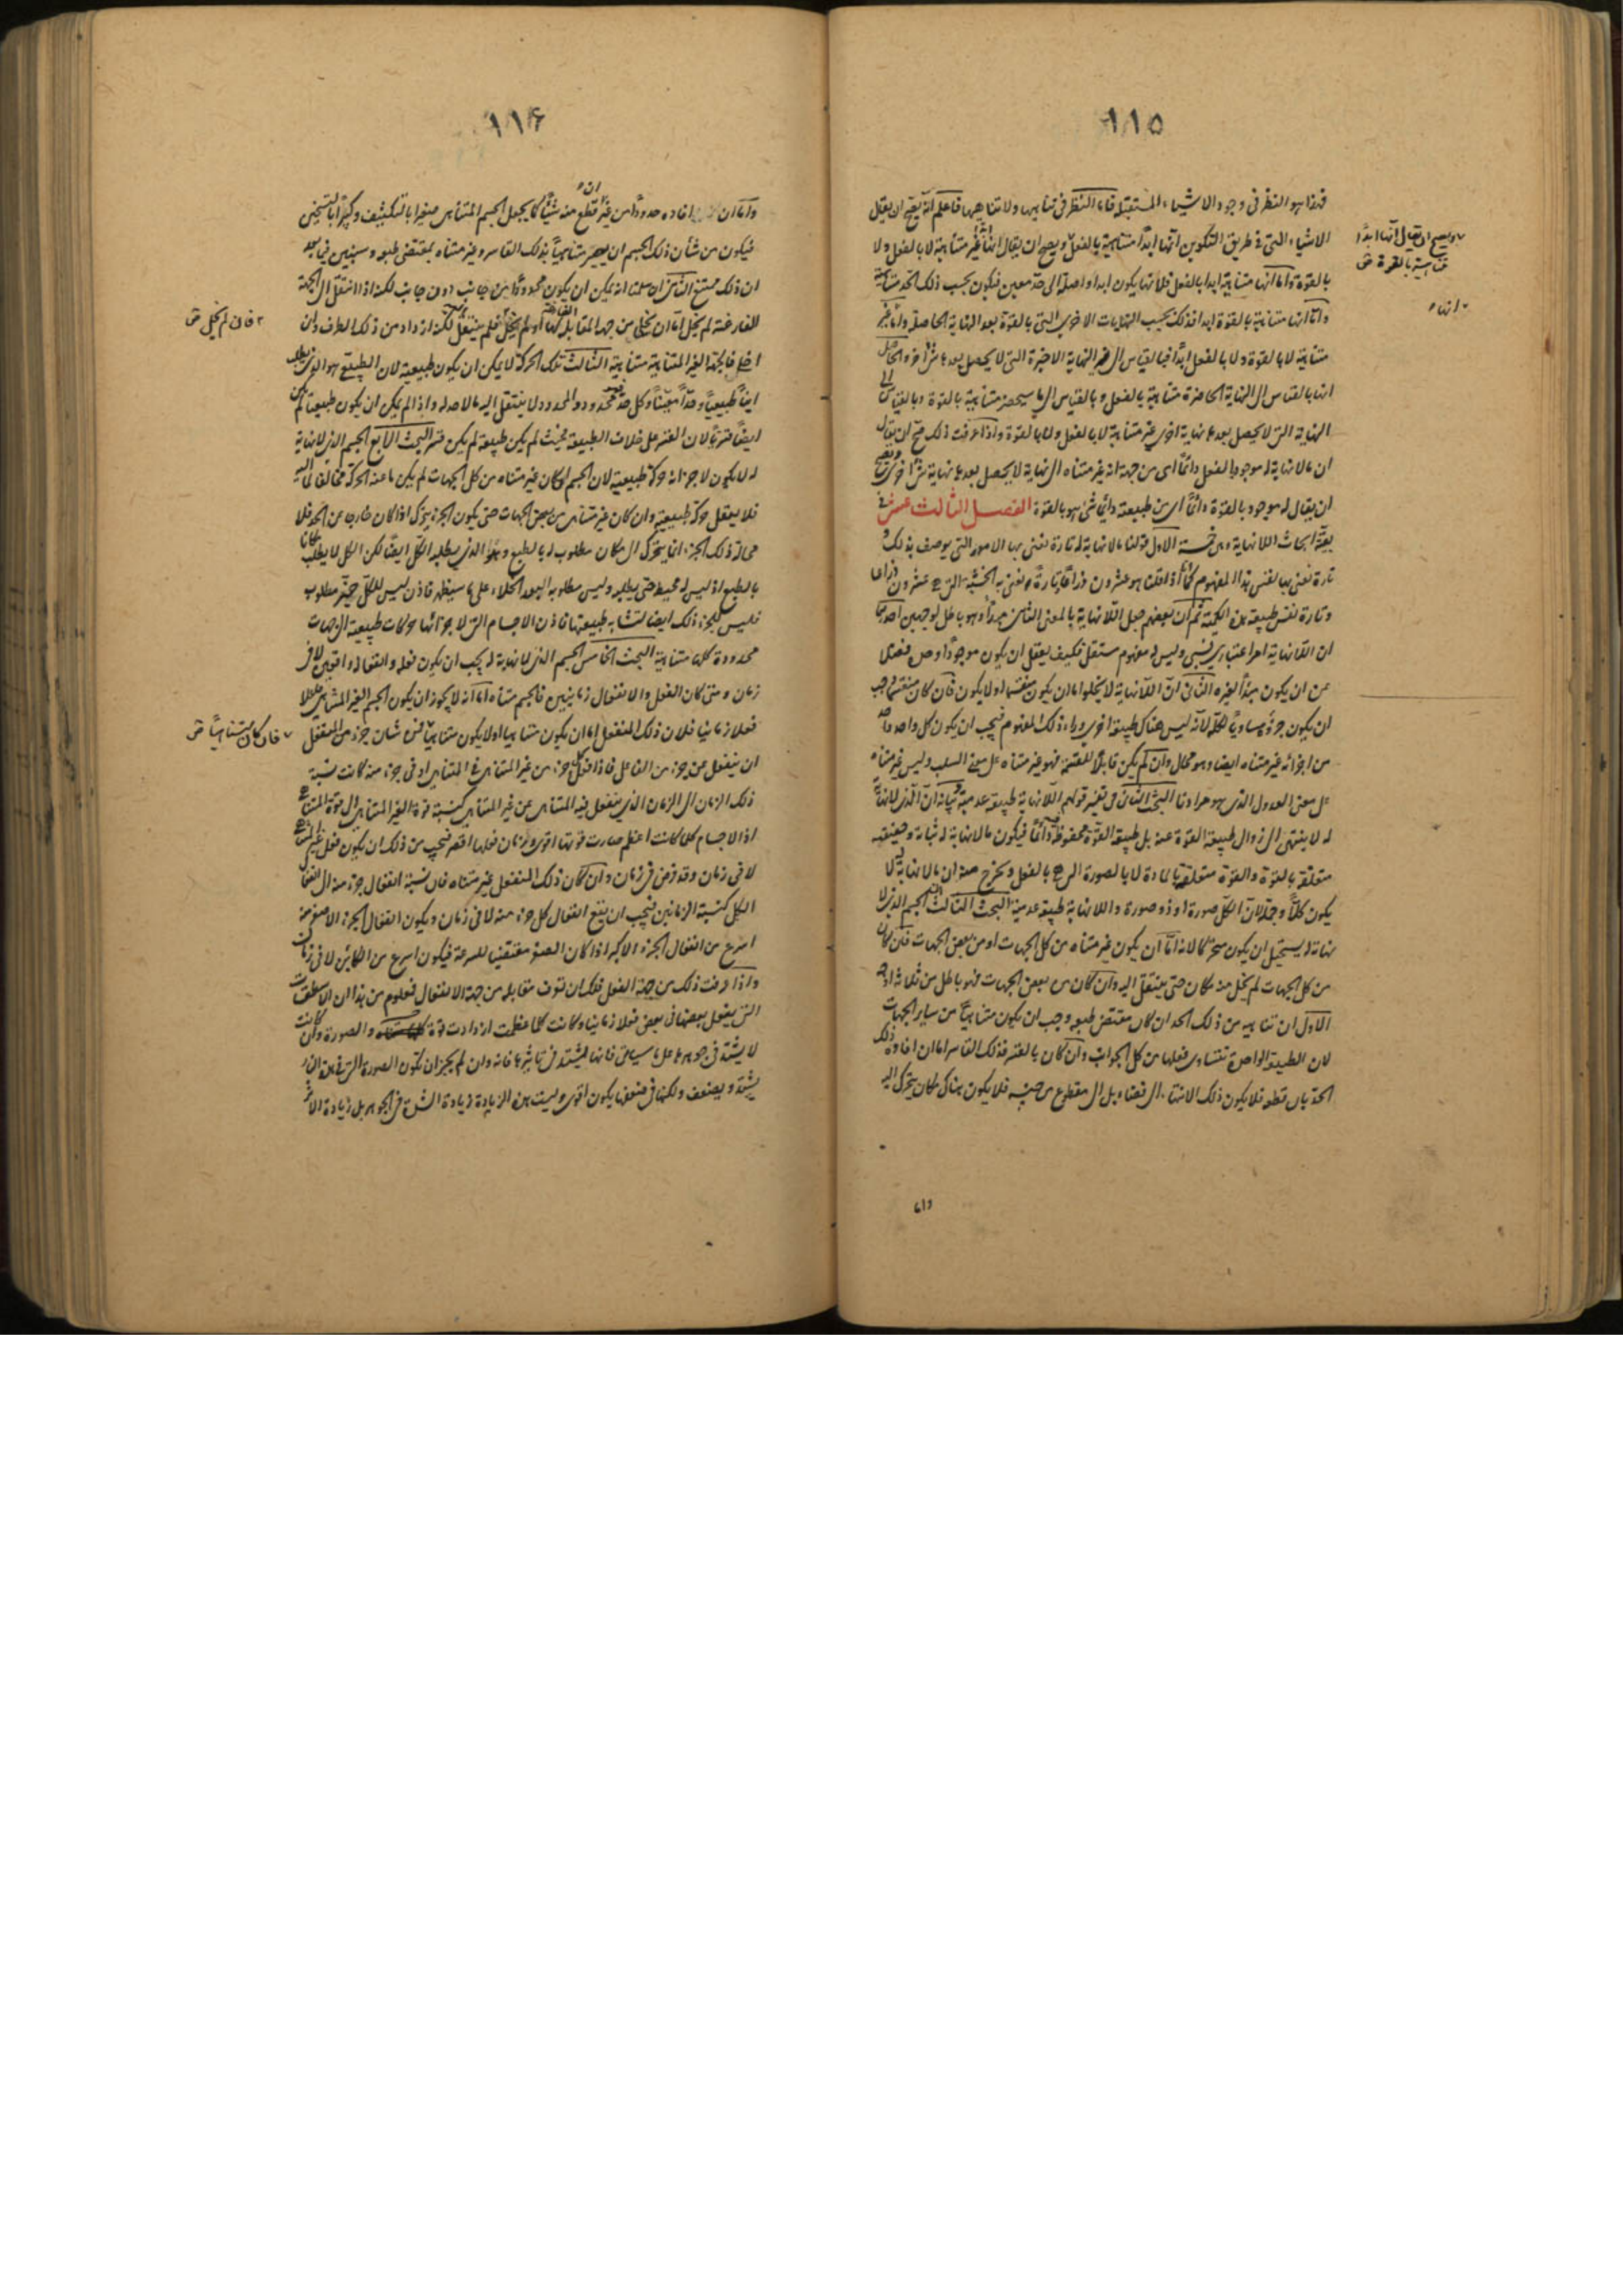 ١١٥
فهذا هو النظر فى وجود الاشياء المستقبلة فاما النظر فى تناهيها ولا تناهيها فاعلم انه يصح ان يقال
الاشياء التى فى طريق التكوين انها ابدًا متناهية بالفعل ويصح ان يقال انها غير متناهية لا بالفعل ولا
بالقوة واما انها متناهية ابدا بالفعل فلانها يكون ابدا واصلة الى حد معين فيكون بحسب ذلك الحد متناهية
واما انها متناهية بالقوة ابدا فذلك بحسب النهايات الاخرى التى بالقوة بعد النهاية الحاصلة واما غير
متناهية لا بالقوة ولا بالفعل ابدًا فبالقياس الى النهاية الاخيرة التى لا يحصل بعدها شئ آخر والحاصل
انها بالقياس الى النهاية الحاضرة متناهية بالفعل وبالقياس الى ما سيحضر متناهية بالقوة وبالقياس الى
النهاية التى لا يحصل بعدها نهاية اخرى غير متناهية لا بالفعل ولا بالقوة واذا عرفت ذلك صح ان يقال
ان ما لا نهاية له موجود بالفعل دائمًا اى من جهة انه غير متناه الى نهاية لا يحصل بعدها نهاية اخرى ويصح
ان يقال له موجود بالقوة دائمًا اى من طبيعته دائمًا شئ هو بالقوة الفصل الثالث عشر فى
بقية ابحاث اللانهاية وهى خمسة الاول قولنا ما لا نهاية له تارة نعنى بها الامور التى يوصف بذلك و
تارة نعنى بها نفس هذا المفهوم كما اذا قلنا هو عشرون ذراعا تارة ونعنى به الخشبة التى هى عشرون ذراعا
وتارة نفس طبيعة هذه الكمية ثم ان بعضهم جعل اللانهاية بالمعنى الثانى مبدأ وهو باطل لوجهين احدهما
ان اللانهاية امر اعتبارى نسبى وليس له مفهوم مستقل فكيف يعقل ان يكون موجودًا وحده فضلا
عن ان يكون مبدأ لغيره الثانى ان اللانهاية لا يخلوا اما ان يكون منقسما اولا يكون فان كان منقسما وجب
ان يكون جزؤه مساويًا لكله لانه ليس هناك طبيعة اخرى وراء ذلك المفهوم فيجب ان يكون كل واحد
من اجزائه غير متناه ايضا وهو محال وان لم يكن قابلًا للقسمة فهو غير متناه على معنى السلب وليس غير متناه
على معنى العدول الذى هو مرادنا البحث الثانى فى تفسير قولهم اللانهاية طبيعة عدمية بيانه ان الذى لا نهاية
له لا ينتهى الى زوال طبيعة القوة عنه بل طبيعة القوة محفوظة دائمًا فيكون ما لا نهاية له ثباته وحقيقته
متعلقة بالقوة والقوة متعلقة بالمادة لا بالصورة التى هى بالفعل ويخرج منه ان ما لا نهاية له لا
يكون كلًا وجملة لان الكل صورة او ذو صورة واللانهاية طبيعة عدمية البحث الثالث الجسم الذى لا
نهاية له يستحيل ان يكون متحركا لانه اما ان يكون غير متناه من كل الجهات او من بعض الجهات فان كان
من كل الجهات لم يخل منه مكان حتى ينتقل اليه وان كان من بعض الجهات فهو باطل من ثلاثة اوجه
الاول ان تناهيه من ذلك الحد ان كان مقتضى طبعه وجب ان يكون متناهيًا من ساير الجهات
لان الطبيعة الواحدة تتساوى فعلها من كل الجوانب وان كان بالقسر فذلك القاسر اما ان افاده ذلك
الحد بان قطعه فلا يكون ذلك الانتهاء الى فضاء بل الى مقطوع من جنسه فلا يكون هناك مكان يتحرك اليه
واما
ويصح ان يقال انها ابدًا
متناهية بالقوة ض
انهاء
١١٦
واما ان افاده حدودًا من غير ان قطع منه شيئًا كما يجعل الجسم المتناهى صغيرا بالتكثيف وكبيرًا بالتسخين
فيكون من شأن ذلك الجسم ان يصير متناهيًا بذلك القاسر وغير متناه بمقتضى طبعه وسنبين فيما بعد
ان ذلك ممتنع الثانى ان سلمنا انه يمكن ان يكون محدودًا من جانب دون جانب لكنه اذا انتقل الى الجهة
الفارغة لم يخل اما ان يخلى من جهة المقابل لها او لم يخل فلم ينتقل لكنه ازداد من ذلك الطرف وان
اخلى فالجهة الغير المتناهية متناهية الثالث تلك الحركة لا يمكن ان يكون طبيعية لان الطبيعى هو الذى يطلب
اينًا طبيعيًا وحدًا معينًا وكل حد محدود والمحدود لا ينتقل اليه ما لا حد له واذا لم يكن ان يكون طبيعيا لم يكن
ايضًا قسريًا لان القسر على خلاف الطبيعة فحيث لم يكن طبيعة لم يكن قسر البحث الرابع الجسم الذى لا نهاية
له لا يكون لاجزائه حركة طبيعية لان الجسم ان كان غير متناه من كل الجهات لم يكن ما عنه الحركة مخالفا لما اليه
فلا يعقل حركة طبيعية وان كان غير متناهى من بعض الجهات حتى يكون الجزء يتحرك اذا كان خارجا عن الحد فلا
محالة ذلك الجزء انما يتحرك الى مكان مطلوب له بالطبع وهو الذى يطلبه الكل ايضًا لكن الكل لا يطلب مكانا
بالطبع اذ ليس له محيط حتى يطلبه وليس مطلوبه البعد الخلاء على ما سيظهر فاذن ليس للكل حيز مطلوب
فليس للجزء ذلك ايضا لتشابه طبيعتها فاذن الاجسام التى لاجزائها حركات طبيعية الى جهات
محدودة كلها متناهية البحث الخامس الجسم الذى لا نهاية له يجب ان يكون فعله وانفعاله واقعين لا فى
زمان ومتى كان الفعل والانفعال زمانيين فالجسم متناه اما انه لا يجوز ان يكون الجسم الغير المتناهى فاعلا
فعلا زمانيا فلان ذلك المنفعل اما ان يكون متناهيا اولا يكون متناهيًا فمن شأن جزء من المنفعل
ان ينفعل عن جزء من الفاعل فاذا فعل جزء من غير المتناهى فى المتناهى او فى جزء منه كانت نسبة
ذلك الزمان الى الزمان الذى ينفعل فيه المتناهى عن غير المتناهى كنسبة قوة الغير المتناهى الى قوة المتناهى
اذ الاجسام كلما كانت اعظم صارت قوتها اقوى وزمان فعلها اقصر فيجب من ذلك ان يكون فعل غير المتناهى
لا فى زمان وقد فرض فى زمان وان كان ذلك المنفعل غير متناه فان نسبة انفعال جزء منه الى انفعال
الكل كنسبة الزمانين فيجب ان يقع انفعال كل جزء منه لا فى زمان ويكون انفعال الجزء الاصغر منه
اسرع من انفعال الجزء الاكبر اذا كان الصغر مقتضيا للسرعة فيكون اسرع من الكائن لا فى زمان
واذا عرفت ذلك من جهة الفعل فلك ان تعرف مقابله من جهة الانفعال فمعلوم من هذا ان الاسطقسات
التى يفعل بعضها فى بعض فعلا زمانيا وكانت كلما عظمت ازدادت قوة والصورة وان كانت
لا يشتد فى جوهرها على ما سياتى فانها يشتد فى تاثيرها فانه وان لم يجز ان تكون الصورة التى فى هذه النار
يشتد ويضعف ولكنها فى ضعفها يكون اقوى وليست هذه الزيادة زيادة الشدة فى الجوهر بل زيادة الاثر
فان لم يخل ض
فان كان متناهيًا ض